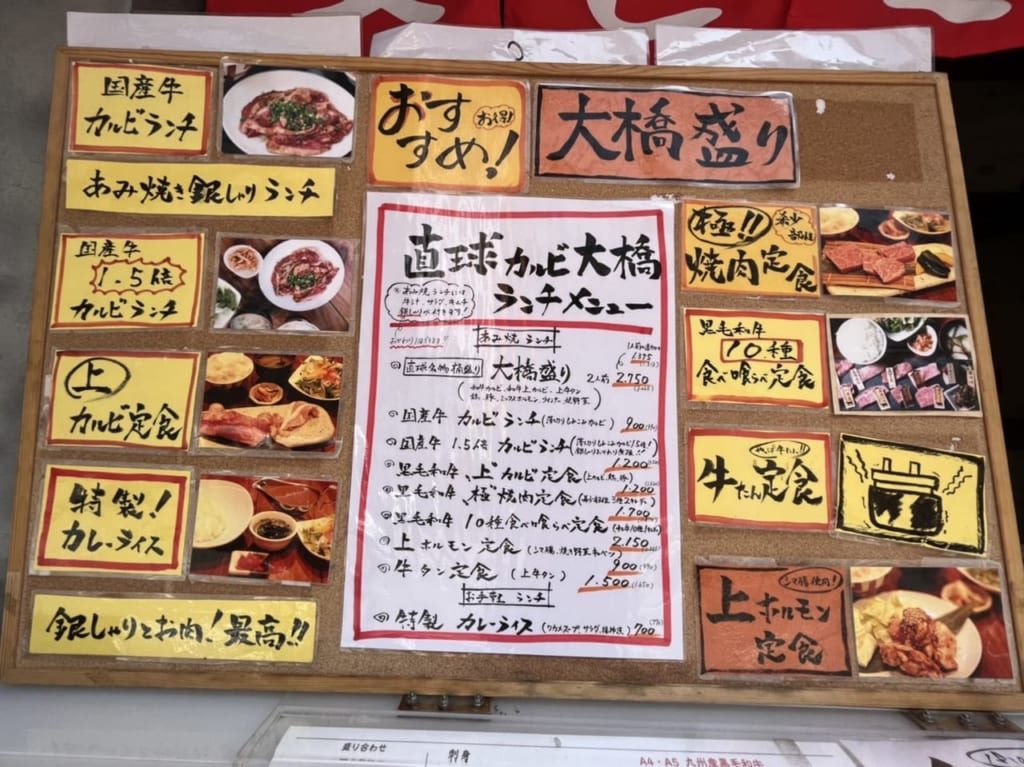 国産牛
カルビランチ
あみ焼き銀しゃりランチ
国産牛
1.5倍
カルビランチ
上
カルビ定食
特製!
カレーライス
銀しゃりとお肉!最高!!
おす
すめ!
お得!
大橋盛り
直球 カルビ 大橋
ランチメニュー
あみ焼 ランチ
直球名物桶盛り 大橋盛り 2人前 2.750
1.375
国産牛 カルビランチ 900
国産牛 1.5倍 カルビランチ
1.200
黒毛和牛、上カルビ定食
1.200
黒毛和牛、極 焼肉定食
1.700
黒毛和牛 10種食べ喰らべ定食
2.150
上ホルモン定食
900
牛タン定食 (上牛タン)
1.500
お手軽 ランチ
特製 カレーライス (ワカメスープ、サラダ、福神漬) 700
極!!
希少部位
焼肉定食
黒毛和牛
10種
食べ喰らべ定食
牛たん定食
シマ腸使用!
上ホルモン
定食
盛り合わせ
刺身
A4・A5 九州産黒毛和牛